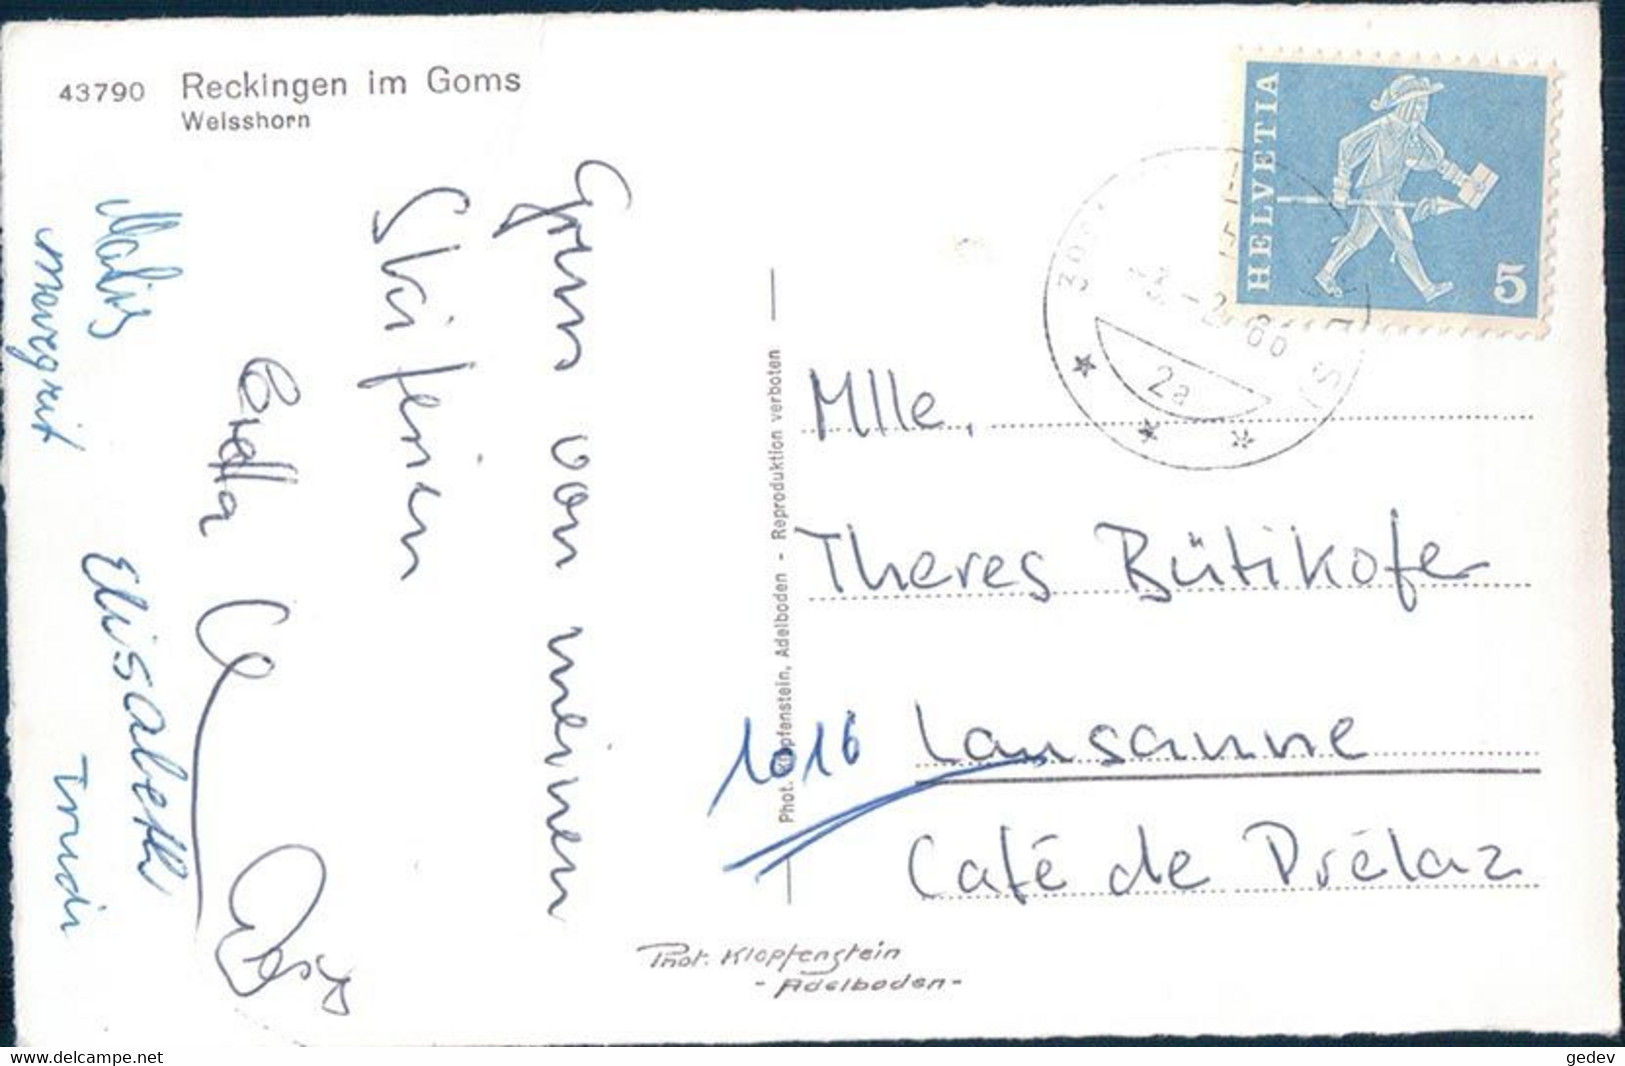 43790 Reckingen im Goms
Weisshorn
HELVETIA
5
-3.-2.66
2a
Gruss von meinen
Skiferien
Elisabeth
Trudi
margrit
Mlle.
Theres Bütikofer
1016 Lausanne
Café de Prélaz
Phot. Klopfenstein, Adelboden - Reproduktion verboten
Phot. Klopfenstein
- Adelboden -
www.delcampe.net
gedev